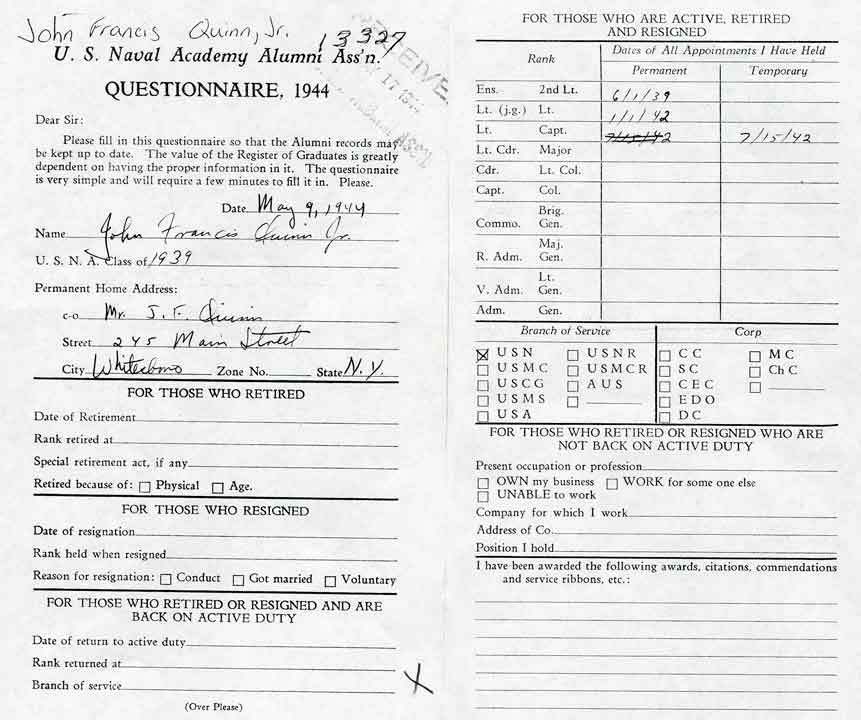 John Francis Quinn, Jr. 13327
U. S. Naval Academy Alumni Ass'n.
QUESTIONNAIRE, 1944
Dear Sir:
Please fill in this questionnaire so that the Alumni records may
be kept up to date. The value of the Register of Graduates is greatly
dependent on having the proper information in it. The questionnaire
is very simple and will require a few minutes to fill it in. Please.
Date May 9, 1944
Name John Francis Quinn Jr.
U. S. N. A. Class of 1939
Permanent Home Address:
c-o Mr. J. F. Quinn
Street 245 Main Street
City Whitesboro Zone No. State N. Y.
FOR THOSE WHO RETIRED
Date of Retirement
Rank retired at
Special retirement act, if any
Retired because of: Physical Age.
FOR THOSE WHO RESIGNED
Date of resignation
Rank held when resigned
Reason for resignation: Conduct Got married Voluntary
FOR THOSE WHO RETIRED OR RESIGNED AND ARE
BACK ON ACTIVE DUTY
Date of return to active duty
Rank returned at
Branch of service
X
(Over Please)
FOR THOSE WHO ARE ACTIVE, RETIRED
AND RESIGNED
Rank Dates of All Appointments I Have Held
Permanent Temporary
Ens. 2nd Lt. 6/1/39
Lt. (j.g.) Lt. 1/1/42
Lt. Capt. 7/15/42 7/15/42
Lt. Cdr. Major
Cdr. Lt. Col.
Capt. Col.
Commo. Brig. Gen.
R. Adm. Maj. Gen.
V. Adm. Lt. Gen.
Adm. Gen.
Branch of Service Corp
X USN USNR CC MC
USMC USMCR SC ChC
USCG AUS CEC
USMS EDO
USA DC
FOR THOSE WHO RETIRED OR RESIGNED WHO ARE
NOT BACK ON ACTIVE DUTY
Present occupation or profession
OWN my business WORK for some one else
UNABLE to work
Company for which I work
Address of Co.
Position I hold
I have been awarded the following awards, citations, commendations
and service ribbons, etc.: